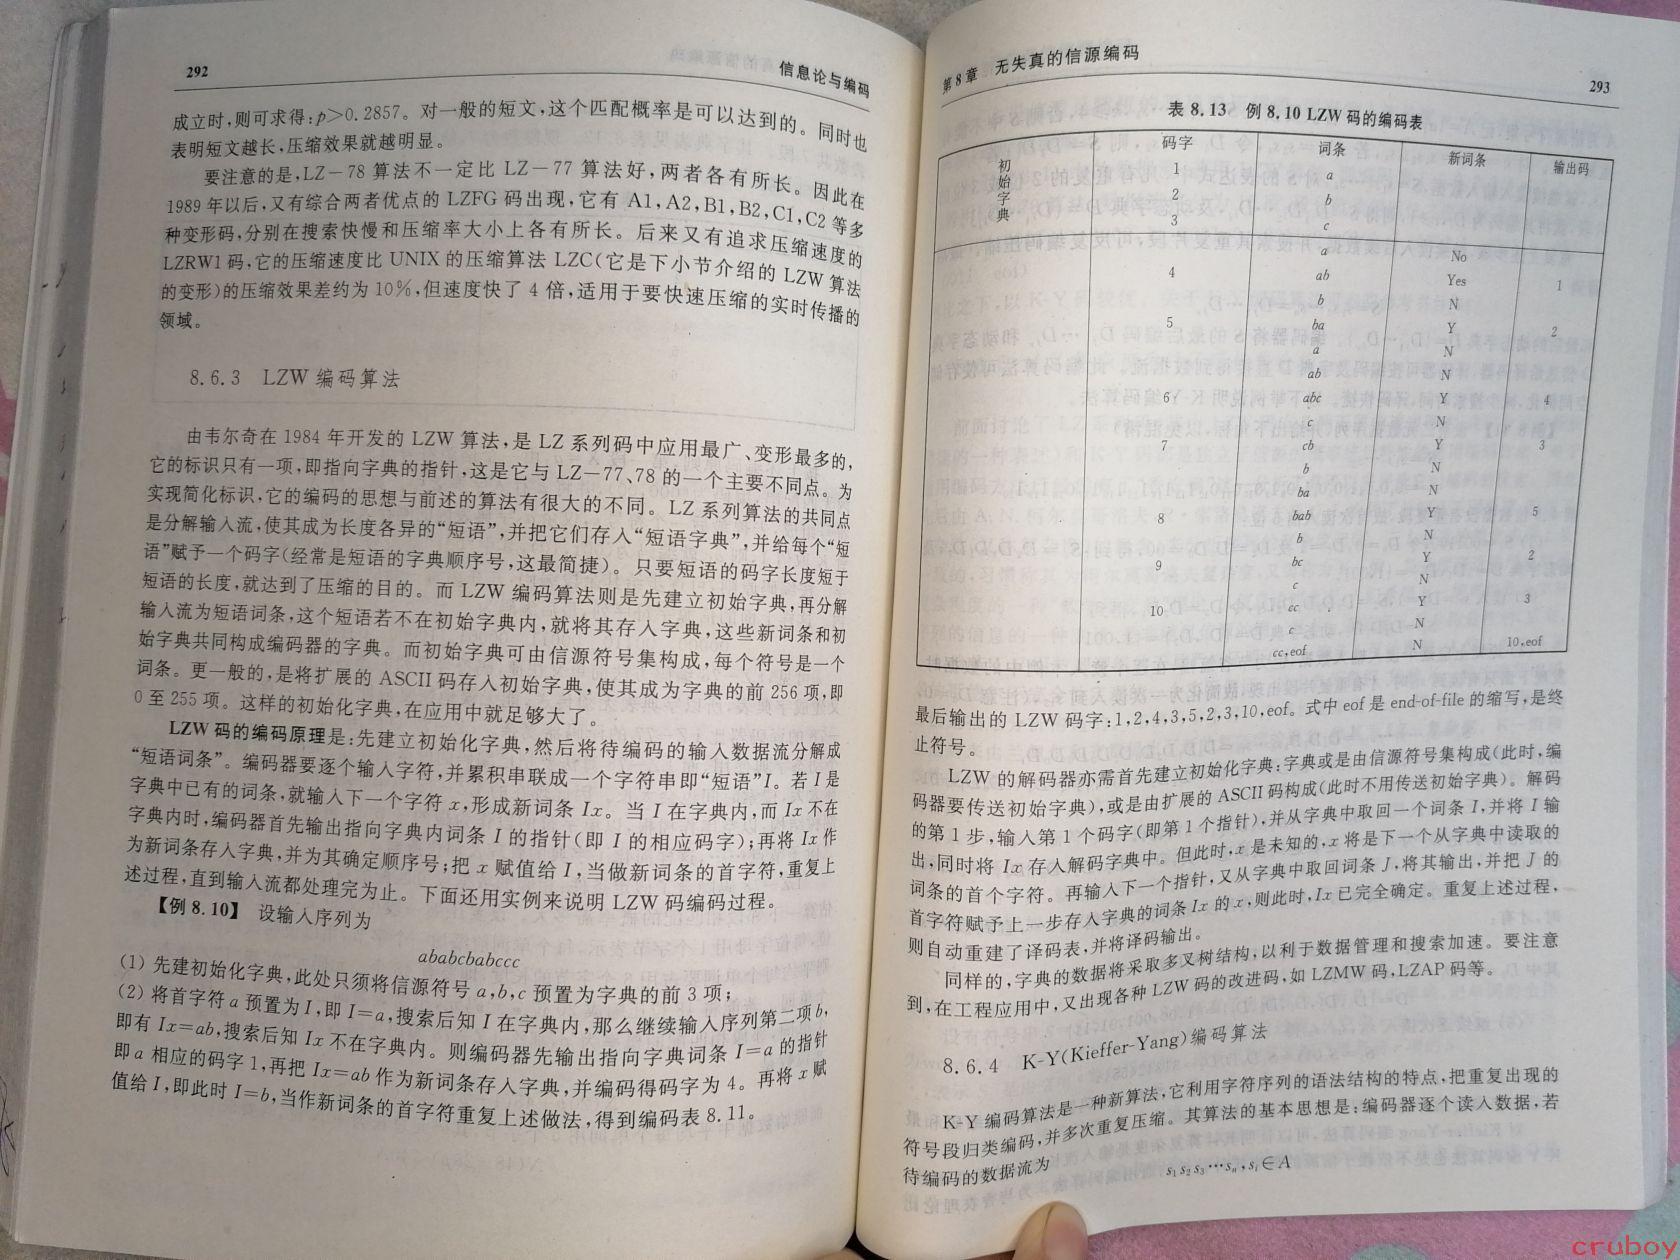 292
信息论与编码
成立时,则可求得:p>0.2857。对一般的短文,这个匹配概率是可以达到的。同时也
表明短文越长,压缩效果就越明显。
要注意的是,LZ-78 算法不一定比 LZ-77 算法好,两者各有所长。因此在
1989 年以后,又有综合两者优点的 LZFG 码出现,它有 A1,A2,B1,B2,C1,C2 等多
种变形码,分别在搜索快慢和压缩率大小上各有所长。后来又有追求压缩速度的
LZRW1 码,它的压缩速度比 UNIX 的压缩算法 LZC(它是下小节介绍的 LZW 算法
的变形)的压缩效果差约为 10%,但速度快了 4 倍,适用于要快速压缩的实时传播的
领域。
8.6.3 LZW 编码算法
由韦尔奇在 1984 年开发的 LZW 算法,是 LZ 系列码中应用最广、变形最多的,
它的标识只有一项,即指向字典的指针,这是它与 LZ-77、78 的一个主要不同点。为
实现简化标识,它的编码的思想与前述的算法有很大的不同。LZ 系列算法的共同点
是分解输入流,使其成为长度各异的“短语”,并把它们存入“短语字典”,并给每个“短
语”赋予一个码字(经常是短语的字典顺序号,这最简捷)。只要短语的码字长度短于
短语的长度,就达到了压缩的目的。而 LZW 编码算法则是先建立初始字典,再分解
输入流为短语词条,这个短语若不在初始字典内,就将其存入字典,这些新词条和初
始字典共同构成编码器的字典。而初始字典可由信源符号集构成,每个符号是一个
词条。更一般的,是将扩展的 ASCII 码存入初始字典,使其成为字典的前 256 项,即
0 至 255 项。这样的初始化字典,在应用中就足够大了。
LZW 码的编码原理是:先建立初始化字典,然后将待编码的输入数据流分解成
“短语词条”。编码器要逐个输入字符,并累积串联成一个字符串即“短语”I。若 I 是
字典中已有的词条,就输入下一个字符 x,形成新词条 Ix。当 I 在字典内,而 Ix 不在
字典内时,编码器首先输出指向字典内词条 I 的指针(即 I 的相应码字);再将 Ix 作
为新词条存入字典,并为其确定顺序号;把 x 赋值给 I,当做新词条的首字符,重复上
述过程,直到输入流都处理完为止。下面还用实例来说明 LZW 码编码过程。
【例 8.10】 设输入序列为
ababcbabccc
(1) 先建初始化字典,此处只须将信源符号 a,b,c 预置为字典的前 3 项;
(2) 将首字符 a 预置为 I,即 I=a,搜索后知 I 在字典内,那么继续输入序列第二项 b,
即有 Ix=ab,搜索后知 Ix 不在字典内。则编码器先输出指向字典词条 I=a 的指针
即 a 相应的码字 1,再把 Ix=ab 作为新词条存入字典,并编码得码字为 4。再将 x 赋
值给 I,即此时 I=b,当作新词条的首字符重复上述做法,得到编码表 8.11。
第 8 章 无失真的信源编码
293
表 8.13 例 8.10 LZW 码的编码表
初始字典 码字 词条 新词条 输出码
a
2 b
3 c
a No
4 ab Yes 1
b N
5 ba Y 2
a N
ab N
6 abc Y 4
c N
7 cb Y 3
b N
ba N
8 bab Y 5
b N
9 bc Y 2
c N
10 cc Y 3
c N
cc,eof N 10,eof
最后输出的 LZW 码字:1,2,4,3,5,2,3,10,eof。式中 eof 是 end-of-file 的缩写,是终
止符号。
LZW 的解码器亦需首先建立初始化字典;字典或是由信源符号集构成(此时,编
码器要传送初始字典),或是由扩展的 ASCII 码构成(此时不用传送初始字典)。解码
的第 1 步,输入第 1 个码字(即第 1 个指针),并从字典中取回一个词条 I,并将 I 输
出,同时将 Ix 存入解码字典中。但此时,x 是未知的,x 将是下一个从字典中读取的
词条的首个字符。再输入下一个指针,又从字典中取回词条 J,将其输出,并把 J 的
首字符赋予上一步存入字典的词条 Ix 的 x,则此时,Ix 已完全确定。重复上述过程,
则自动重建了译码表,并将译码输出。
同样的,字典的数据将采取多叉树结构,以利于数据管理和搜索加速。要注意
到,在工程应用中,又出现各种 LZW 码的改进码,如 LZMW 码,LZAP 码等。
8.6.4 K-Y(Kieffer-Yang)编码算法
K-Y 编码算法是一种新算法,它利用字符序列的语法结构的特点,把重复出现的
符号段归类编码,并多次重复压缩。其算法的基本思想是:编码器逐个读入数据,若
待编码的数据流为
s₁s₂s₃⋯sₙ,sᵢ∈A
cruboy